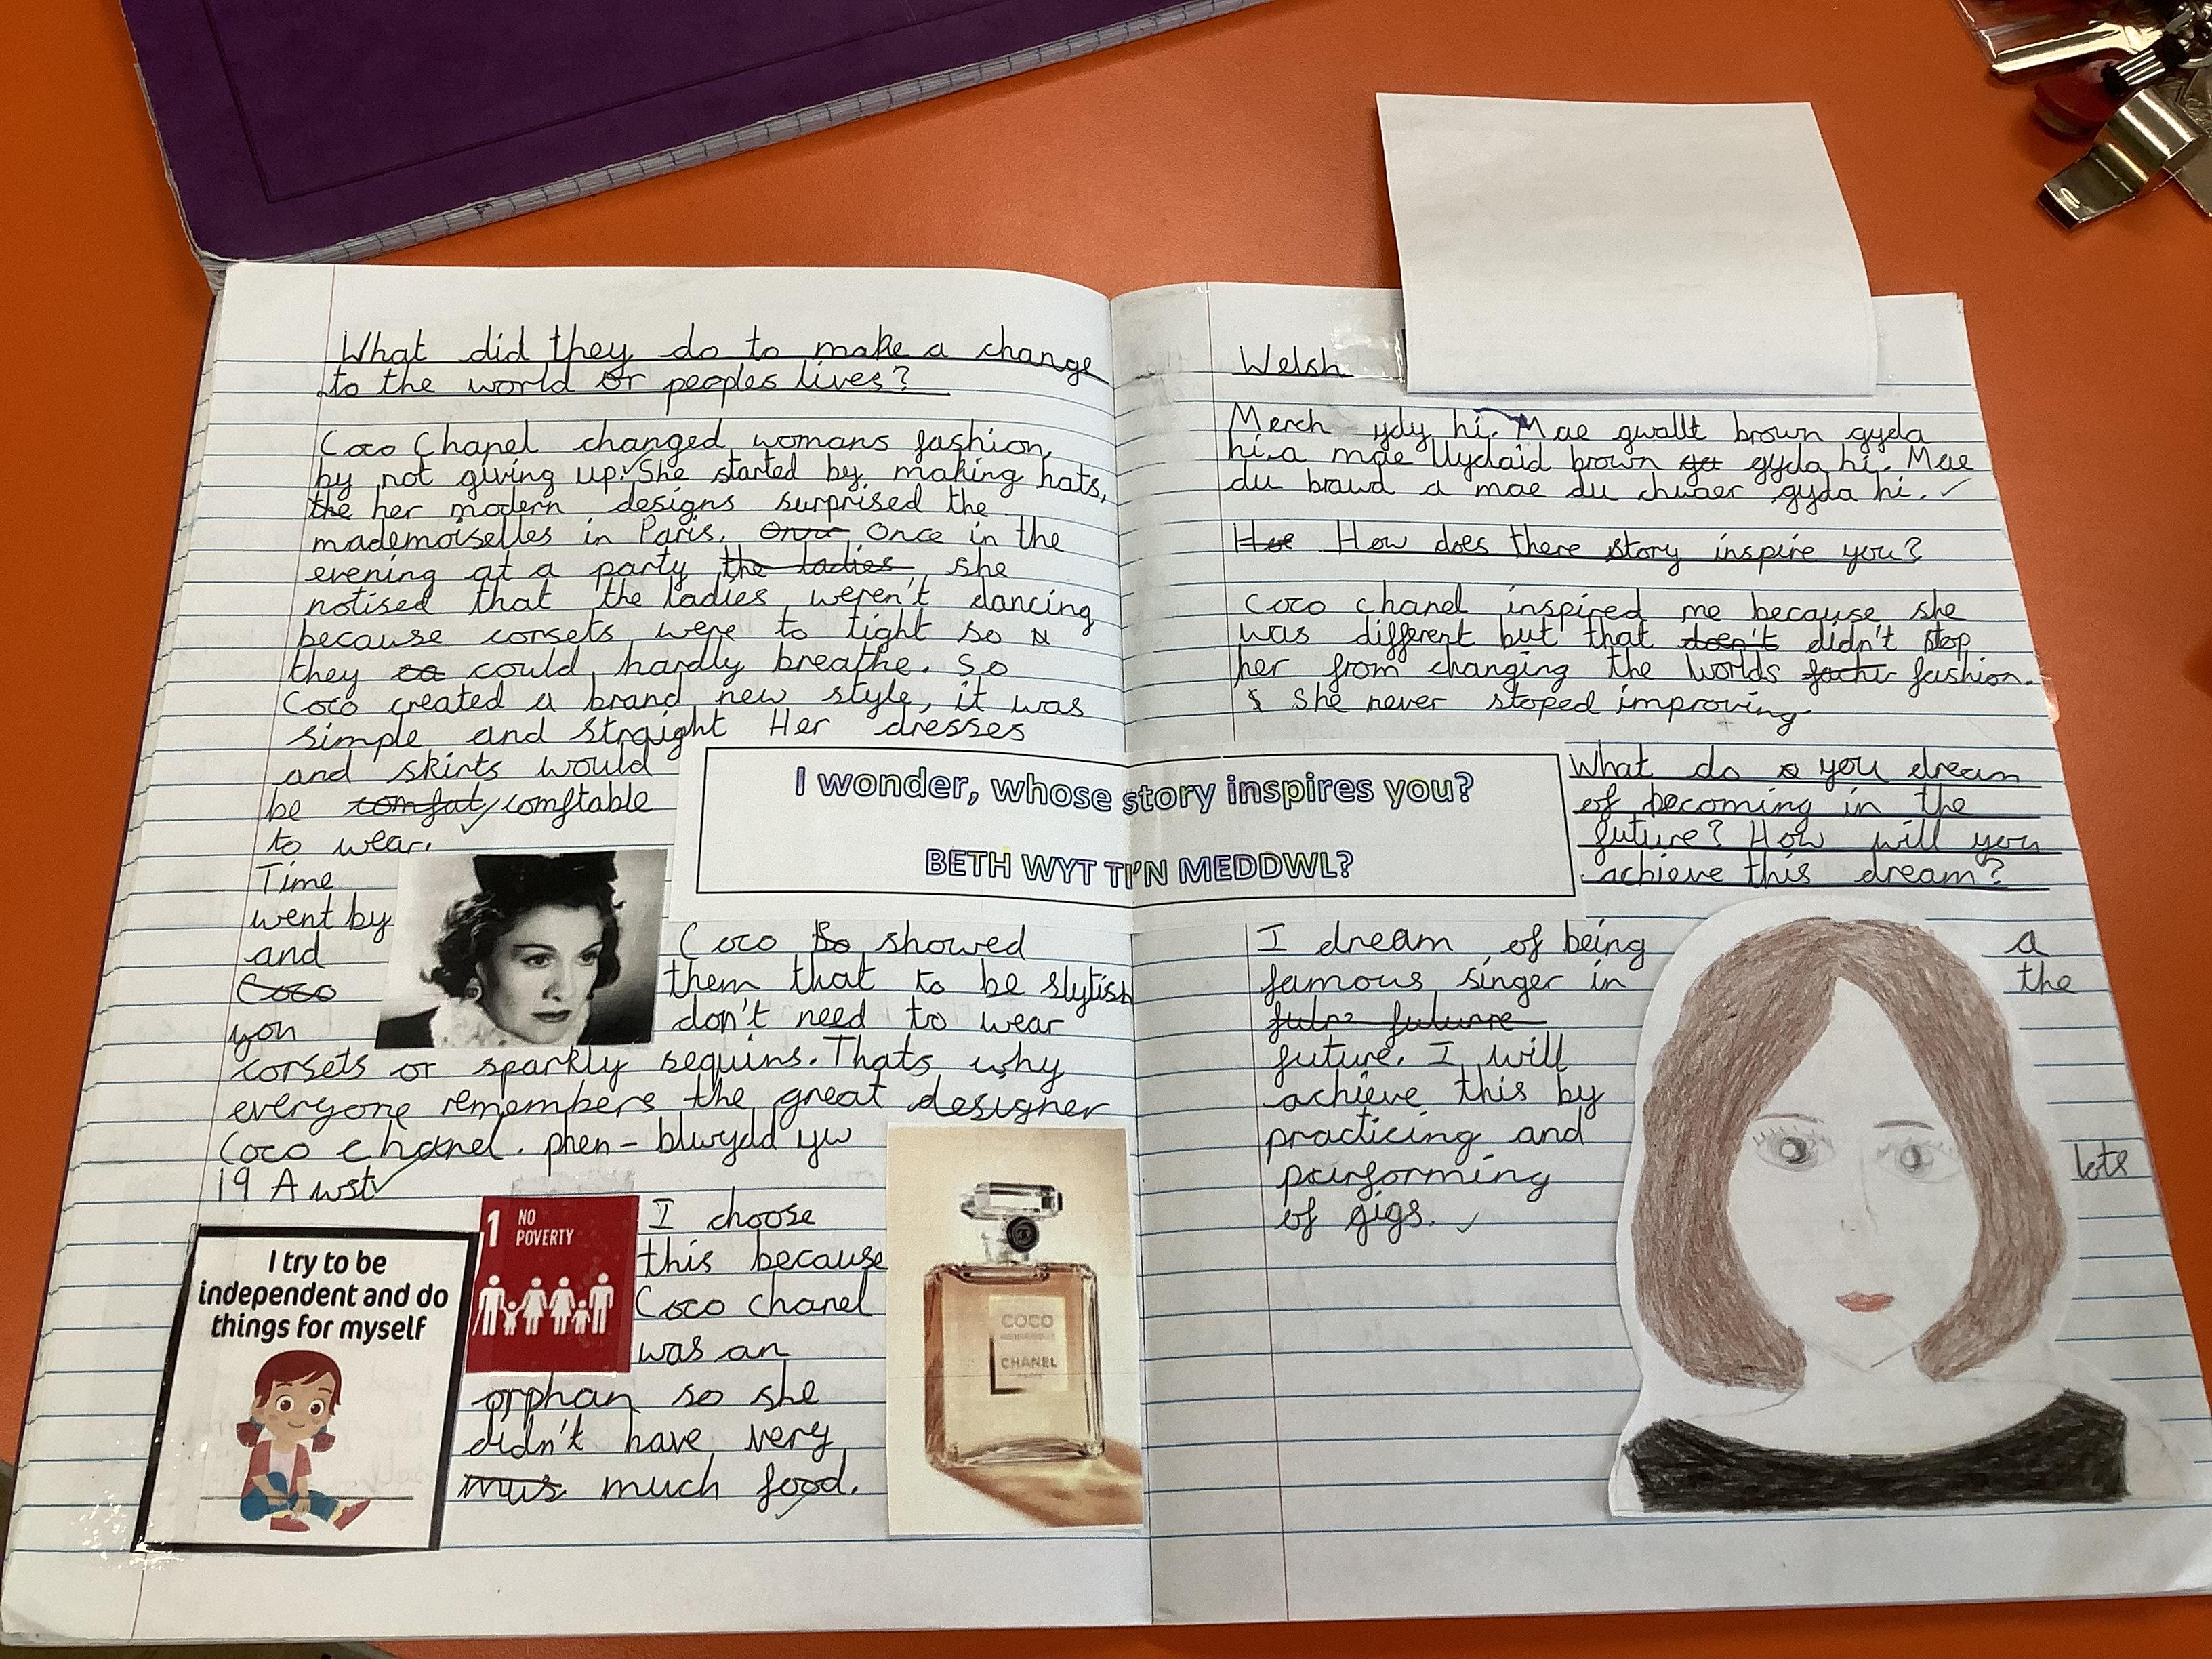 What did they do to make a change
to the world or peoples lives?
Coco Chanel changed womans fashion,
by not giving up. She started by making hats,
the her modern designs surprised the
mademoiselles in Paris. Once in the
evening at a party the ladies she
notised that the ladies weren't dancing
because corsets were to tight so
they ca could hardly breathe. So
Coco created a brand new style, it was
simple and straight Her dresses
and skirts would
be comfat comftable
to wear.
Time
went by
and
Coco
you
Coco So showed
them that to be slytish
don't need to wear
corsets or sparkly sequins. Thats why
everyone remembers the great designer
Coco chanel. phen-blwydd yw
19 Awst
I try to be
independent and do
things for myself
1 NO
POVERTY
I choose
this because
Coco chanel
was an
orphan so she
didn't have very
mus much food.
COCO
CHANEL
I wonder, whose story inspires you?
BETH WYT TI'N MEDDWL?
Welsh
Merch ydy hi. Mae gwallt brown gyda
hi a mae llydaid brown ga gyda hi. Mae
du brawd a mae du chwaer gyda hi.
How does there story inspire you?
Coco chanel inspired me because she
was different but that doen't didn't stop
her from changing the worlds fashion.
S She never stoped improving.
What do you dream
of becoming in the
future? How will you
achieve this dream?
I dream of being a
famous singer in the
future
future. I will
achieve this by
practicing and
purforming lots
of gigs.